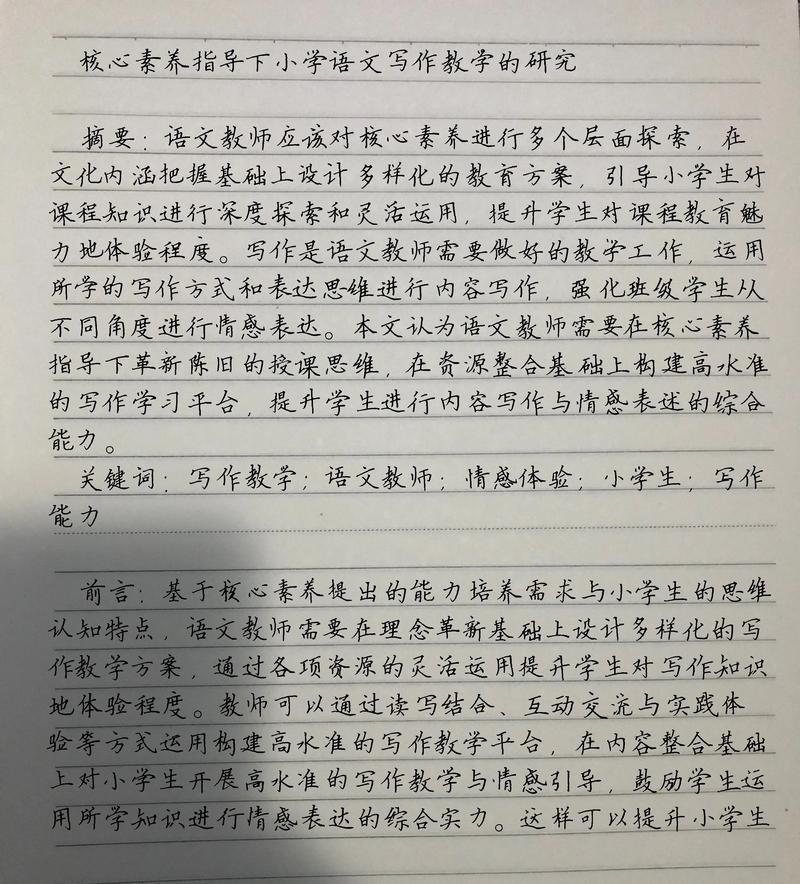 核心素养指导下小学语文写作教学的研究
摘要：语文教师应该对核心素养进行多个层面探索，在
文化内涵把握基础上设计多样化的教育方案，引导小学生对
课程知识进行深度探索和灵活运用，提升学生对课程教育魅
力地体验程度。写作是语文教师需要做好的教学工作，运用
所学的写作方式和表达思维进行内容写作，强化班级学生从
不同角度进行情感表达。本文认为语文教师需要在核心素养
指导下革新陈旧的授课思维，在资源整合基础上构建高水准
的写作学习平台，提升学生进行内容写作与情感表述的综合
能力。
关键词：写作教学；语文教师；情感体验；小学生；写作
能力
前言：基于核心素养提出的能力培养需求与小学生的思维
认知特点，语文教师需要在理念革新基础上设计多样化的写
作教学方案，通过各项资源的灵活运用提升学生对写作知识
地体验程度。教师可以通过读写结合、互动交流与实践体
验等方式运用构建高水准的写作教学平台，在内容整合基础
上对小学生开展高水准的写作教学与情感引导，鼓励学生运
用所学知识进行情感表达的综合实力。这样可以提升小学生